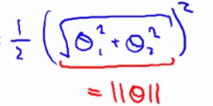 = 1/2 (√(θ₁² + θ₂²))²
= ||θ||